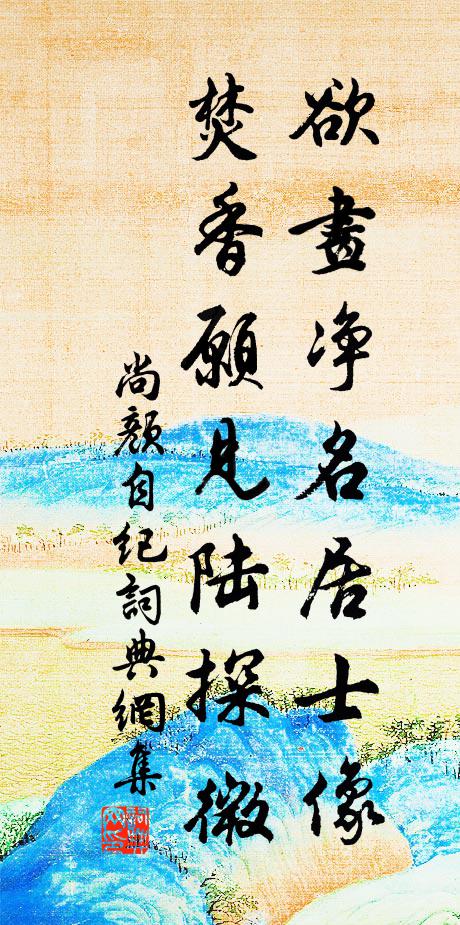 欲畫净名居士像
焚香願見陆探微
尚顔自紀詞典網集